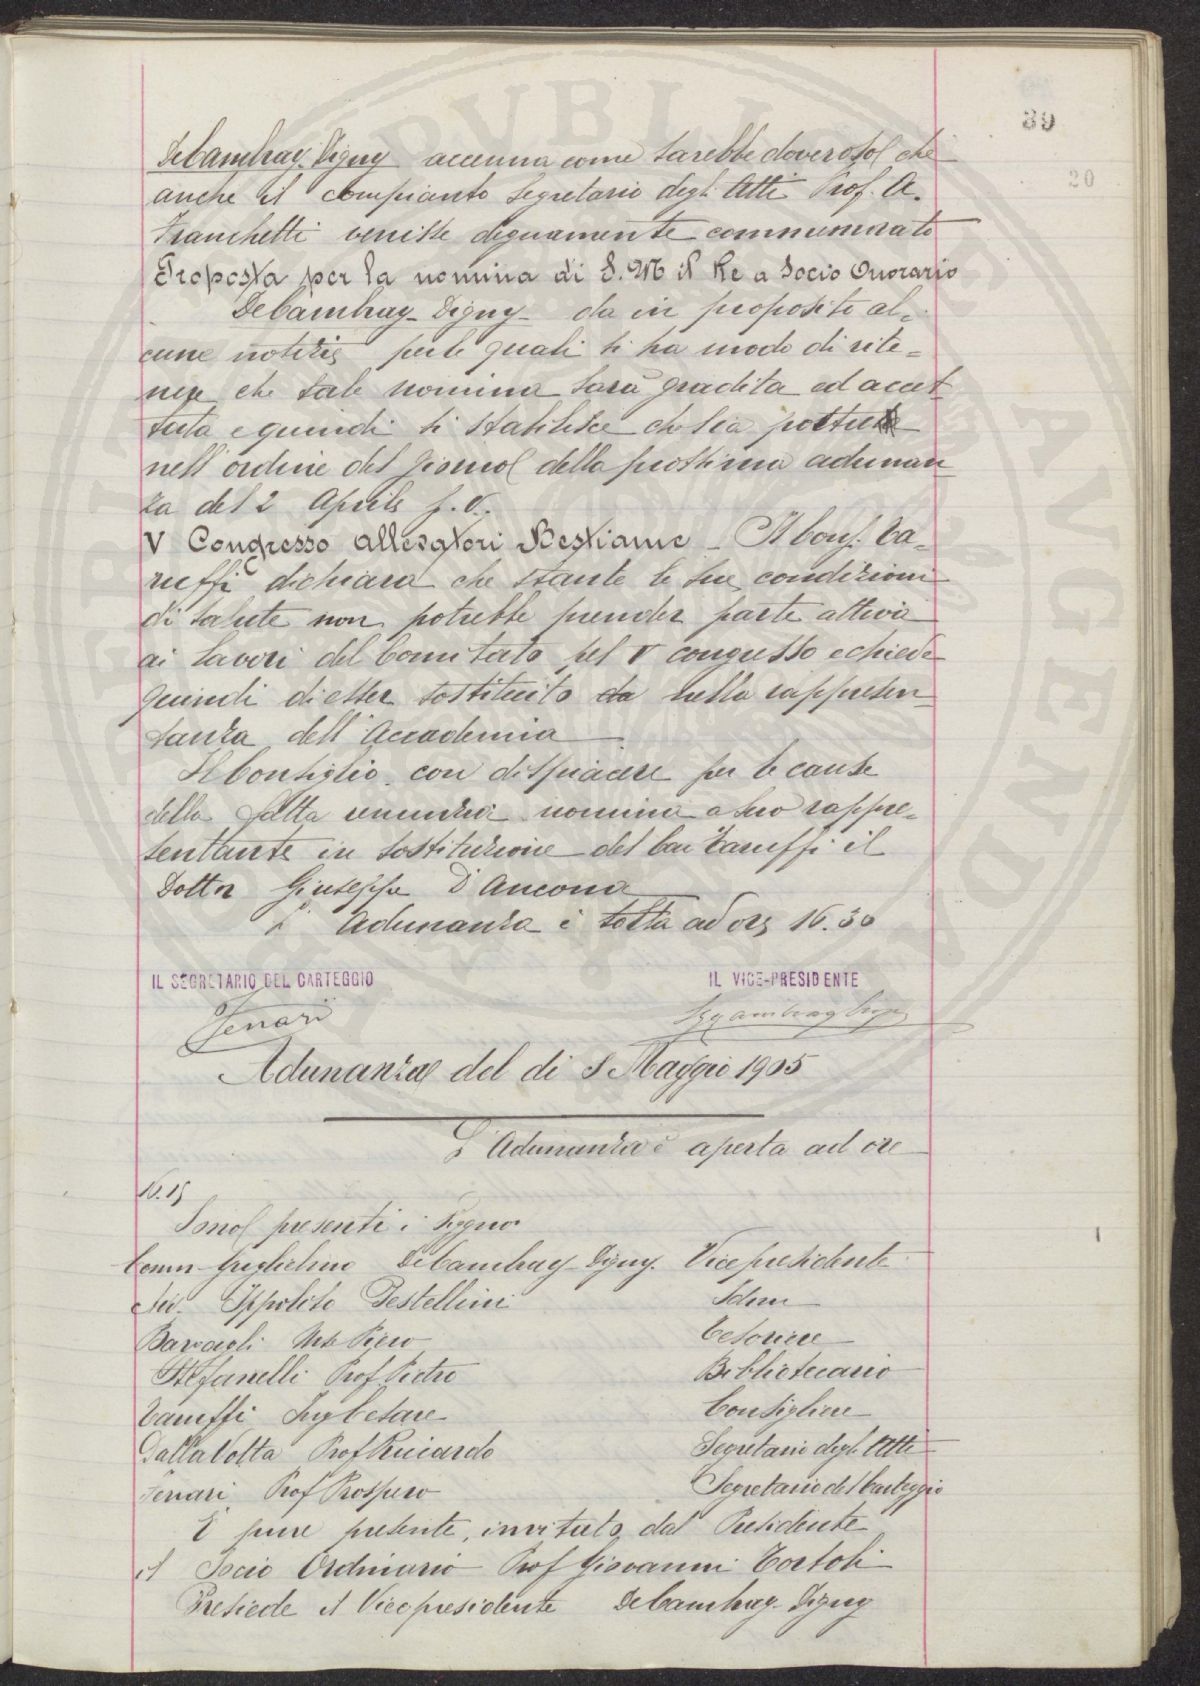 39
20
DeCambray-Digny accenna come sarebbe doveroso che
anche il compianto Segretario degli Atti Prof. A.
Franchetti venisse degnamente commemorato
Proposta per la nomina di S. M. il Re a Socio Onorario
DeCambray-Digny da in proposito al=
cune notizie per le quali si ha modo di rite=
nere che tale nomina sarà gradita ed accet
tata e quindi si stabilisce che sia posta
nell'ordine del giorno della prossima adunan
za del 2 Aprile p.v.
V Congresso allevatori Bestiame - Il Cons. Ta=
ruffi dichiara che stante le sue condizioni
di salute non potrebbe prender parte attiva
ai lavori del Comitato pel V congresso e chiede
quindi di esser sostituito da nella rappresen
tanza dell'Accademia
Il Consiglio con dispiacere per le cause
della fatta renunzia nomina a suo rappre=
sentante in sostituzione del Cav Taruffi il
Dottor Giuseppe D'Ancona
L'Adunanza è tolta ad ore 16.30
IL SEGRETARIO DEL CARTEGGIO
IL VICE-PRESIDENTE
Ferrari
Adunanza del di 8 Maggio 1905
L'Adunanza è aperta ad ore
16.15
Sono presenti i Signori
Comm Guglielmo DeCambray-Digny. Vicepresidente
Avv. Ippolito Pestellini Idem
Barcagli Piero Tesoriere
Stefanelli Prof Pietro Bibliotecario
Taruffi Ing Cesare Consigliere
DallaVolta Prof Riccardo Segretario degli Atti
Ferrari Prof Prospero Segretario del Carteggio
È pure presente, invitato dal Presidente
il Socio Ordinario Prof Giovanni Tortoli
Presiede il Vicepresidente DeCambray-Digny